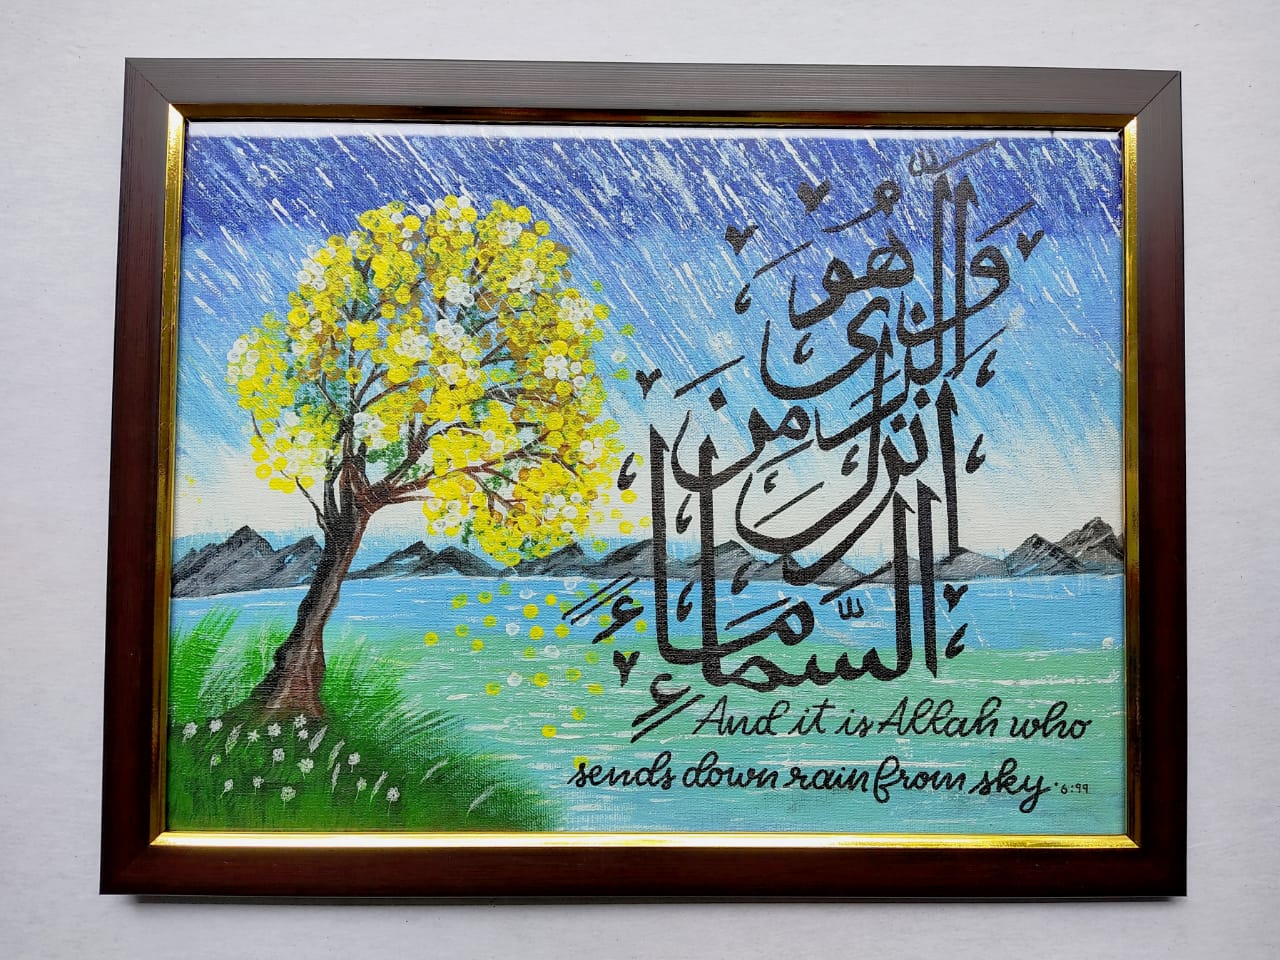 وَهُوَ الَّذى
انزل من
السَّماءِ ماءً
And it is Allah who
sends down rain from sky. 6:99